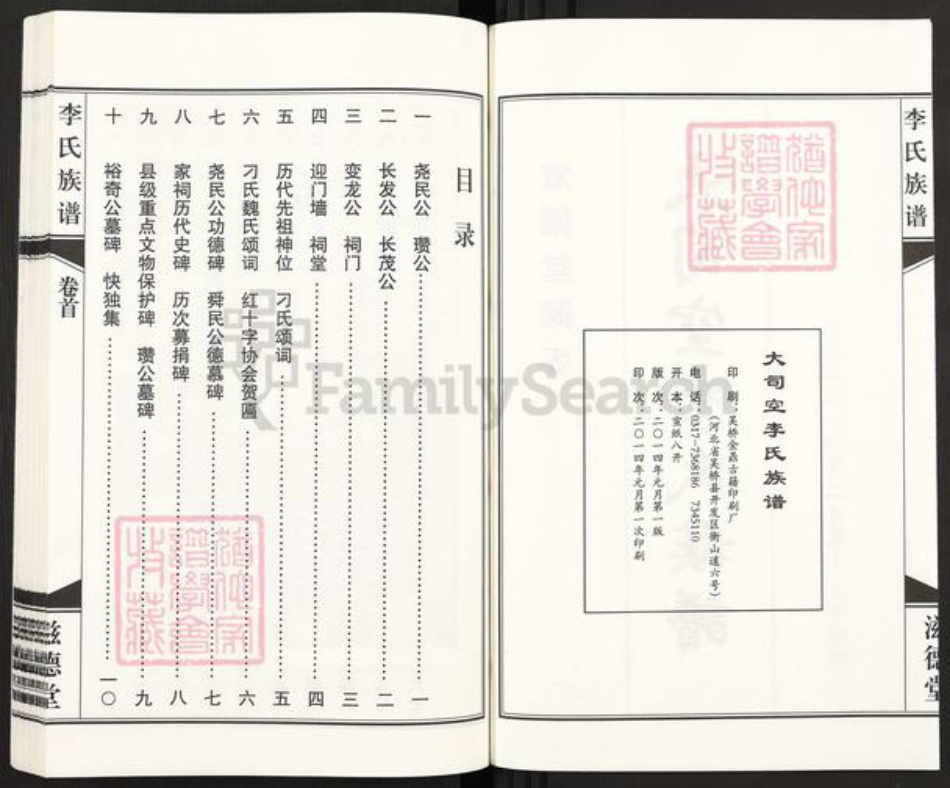 李氏族谱
滋德堂
大司空李氏族谱
印 刷：吴桥金鼎古籍印刷厂
（河北省吴桥县开发区衡山道六号）
电 话：0317-7368186 7345110
开 本：宣纸八开
版 次：二〇一四年元月第一版
印 次：二〇一四年元月第一次印刷
收藏
谱学会
FamilySearch
目录
一 尧民公 瓒公 一
二 长发公 长茂公 二
三 变龙公 祠门 三
四 迎门墙 祠堂 四
五 历代先祖神位 刁氏颂词 五
六 刁氏魏氏颂词 红十字协会贺匾 六
七 尧民公功德碑 舜民公德慕碑 七
八 家祠历代史碑 历次募捐碑 八
九 县级重点文物保护碑 瓒公墓碑 九
十 裕奇公墓碑 快独集 一〇
李氏族谱
卷首
滋德堂